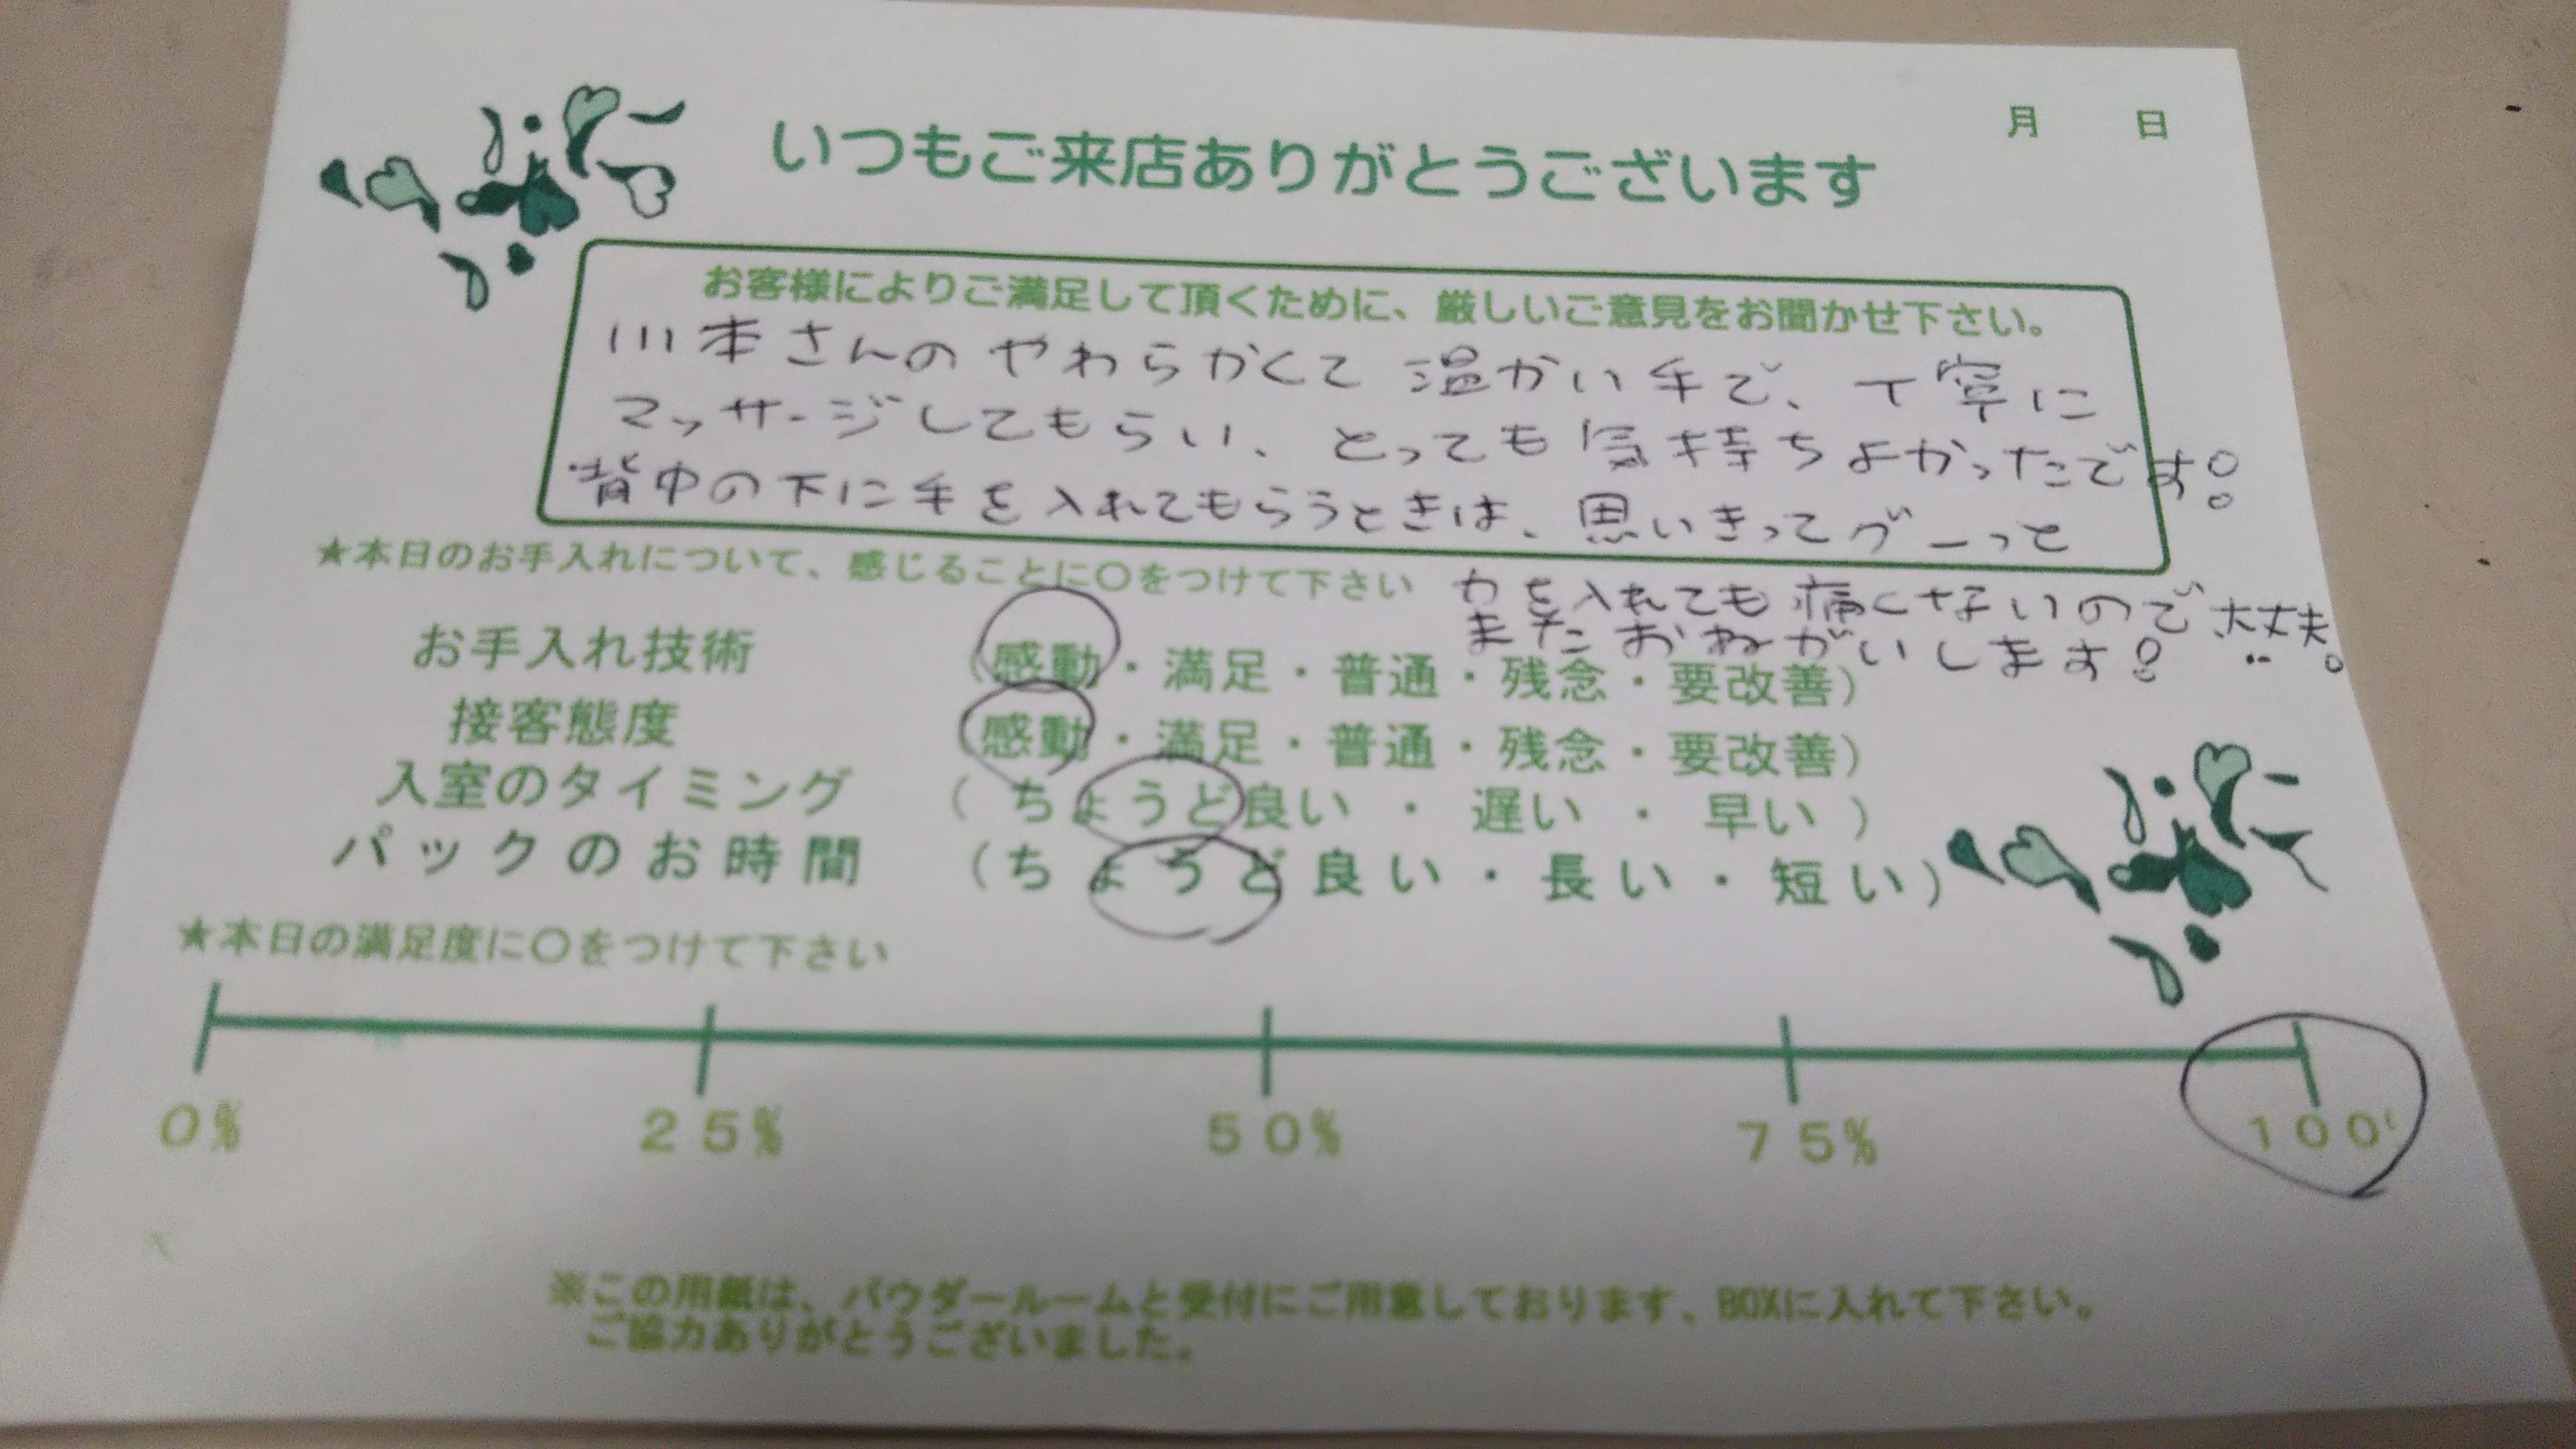 月 日
いつもご来店ありがとうございます
お客様によりご満足して頂くために、厳しいご意見をお聞かせ下さい。
川本さんのやわらかくて温かい手で、丁寧に
マッサージしてもらい、とっても気持ちよかったです!
背中の下に手を入れてもらうときは、思いきってグーっと
力を入れても痛くないので大丈夫。
またおねがいします!
★本日のお手入れについて、感じることに〇をつけて下さい
お手入れ技術 (感動・満足・普通・残念・要改善)
接客態度 (感動・満足・普通・残念・要改善)
入室のタイミング (ちょうど良い・遅い・早い)
パックのお時間 (ちょうど良い・長い・短い)
★本日の満足度に〇をつけて下さい
0% 25% 50% 75% 100
※この用紙は、パウダールームと受付にご用意しております、BOXに入れて下さい。
ご協力ありがとうございました。